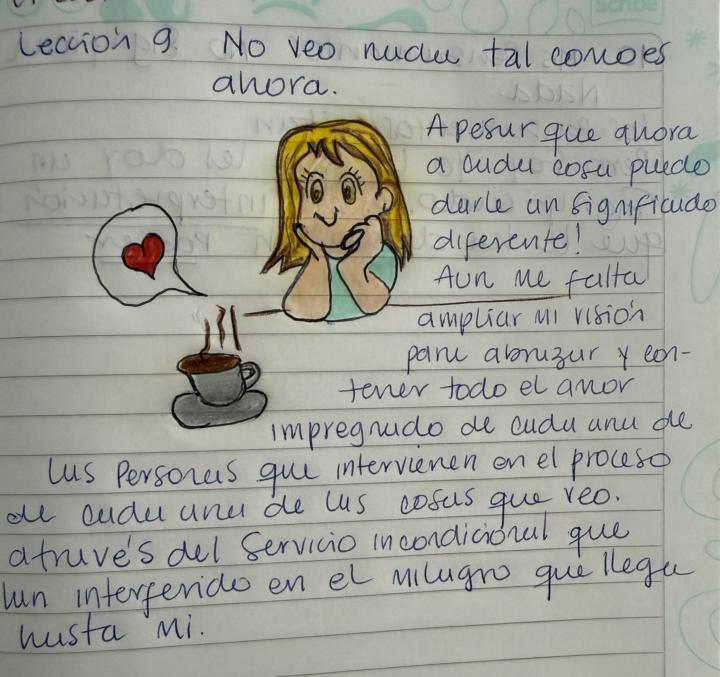 Lección 9. No veo nada tal como es
ahora.
A pesar que ahora
a cada cosa puedo
darle un significado
diferente!
Aun me falta
ampliar mi visión
para abrazar y con-
tener todo el amor
impregnado de cada una de
las personas que intervienen en el proceso
de cada una de las cosas que veo.
através del servicio incondicional que
han interferido en el milagro que llega
hasta mi.
scribe